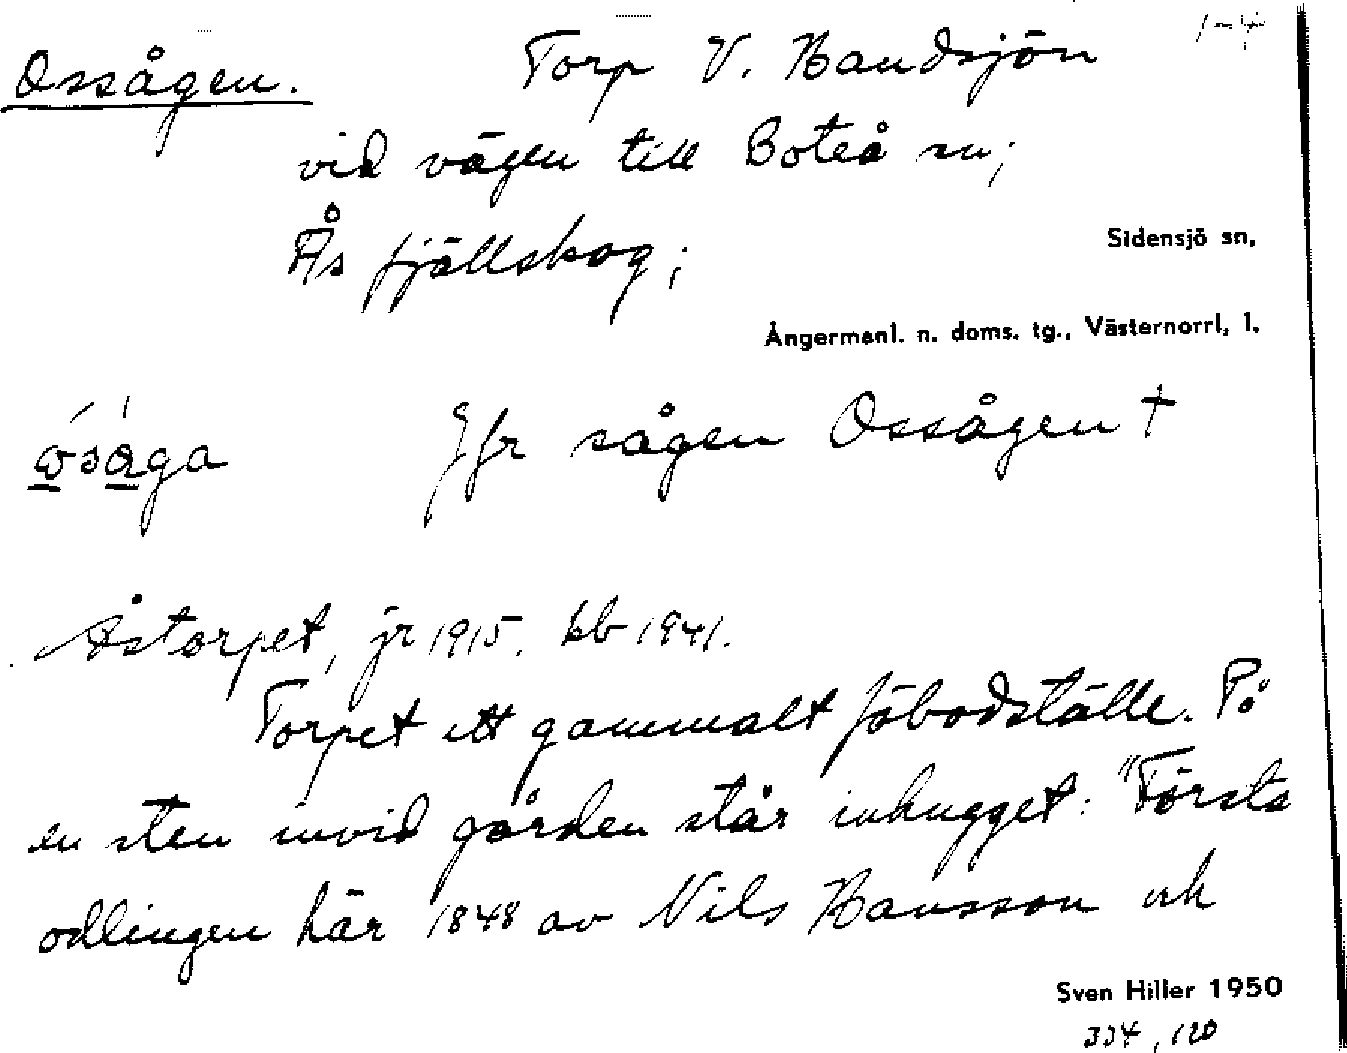 Ossågen. Torp V. Handsjön
vid vägen till Boteå sn;
Ås fjällskog;
Sidensjö sn,
Ångermanl. n. doms. tg., Västernorrl, l,
Jfr sågen Ossågen †
Åstorpet, jr 1915. kb 1941.
Torpet ett gammalt fäbodställe. På
en sten invid gården står inhugget: "Första
odlingen här 1848 av Nils Hansson och
Sven Hiller 1950
334, 120